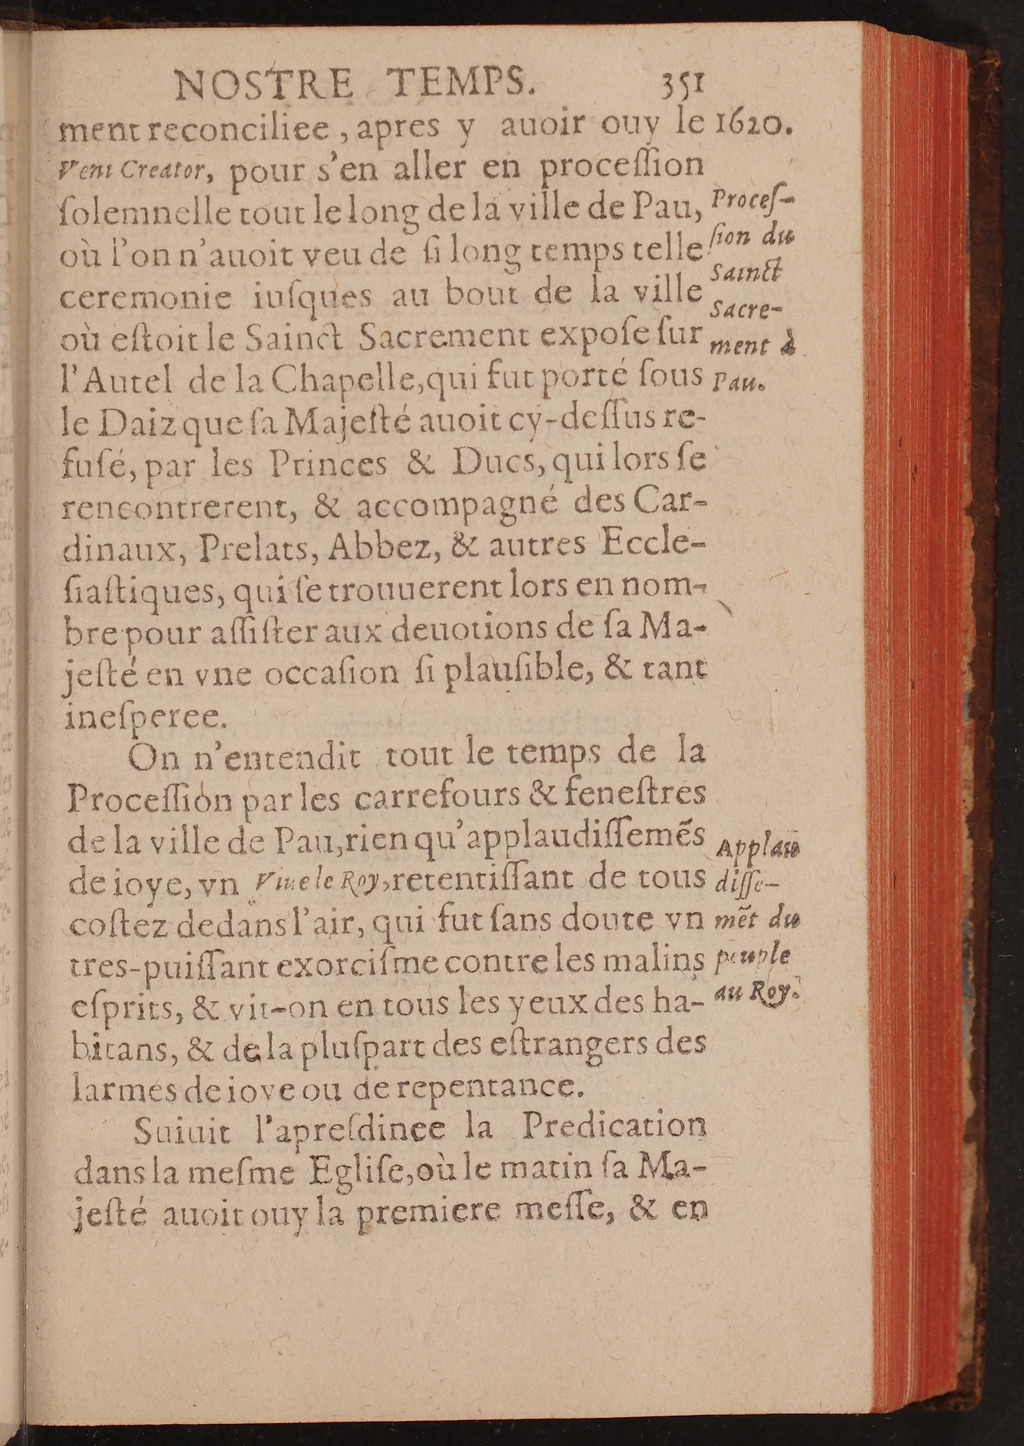 NOSTRE TEMPS. 351
ment reconciliee, apres y auoir ouy le 1620.
Veni Creator, pour s'en aller en proceſſion
ſolemnelle tout le long de la ville de Pau,
où l'on n'auoit veu de ſi long temps telle
ceremonie iuſques au bout de la ville
où eſtoit le Sainct Sacrement expoſe ſur
l'Autel de la Chapelle, qui fut porté ſous
le Daiz que ſa Majeſté auoit cy-deſſus re-
fuſé, par les Princes & Ducs, qui lors ſe
rencontrerent, & accompagné des Car-
dinaux, Prelats, Abbez, & autres Eccle-
ſiaſtiques, qui ſe trouuerent lors en nom-
bre pour aſſiſter aux deuotions de ſa Ma-
jeſté en vne occaſion ſi plauſible, & tant
ineſperee.
Proceſ-
ſion du
Sainct
Sacre-
ment à
Pau.
On n'entendit tout le temps de la
Proceſſion par les carrefours & feneſtres
de la ville de Pau, rien qu'applaudiſſemẽs
de ioye, vn Viue le Roy, retentiſſant de tous
coſtez dedans l'air, qui fut ſans doute vn
tres-puiſſant exorciſme contre les malins
eſprits, & vit-on en tous les yeux des ha-
bitans, & de la pluſpart des eſtrangers des
larmes de ioye ou de repentance.
Applau
diſſe-
mẽt du
peuple
au Roy.
Suiuit l'apreſdinee la Predication
dans la meſme Egliſe, où le matin ſa Ma-
jeſté auoit ouy la premiere meſſe, & en